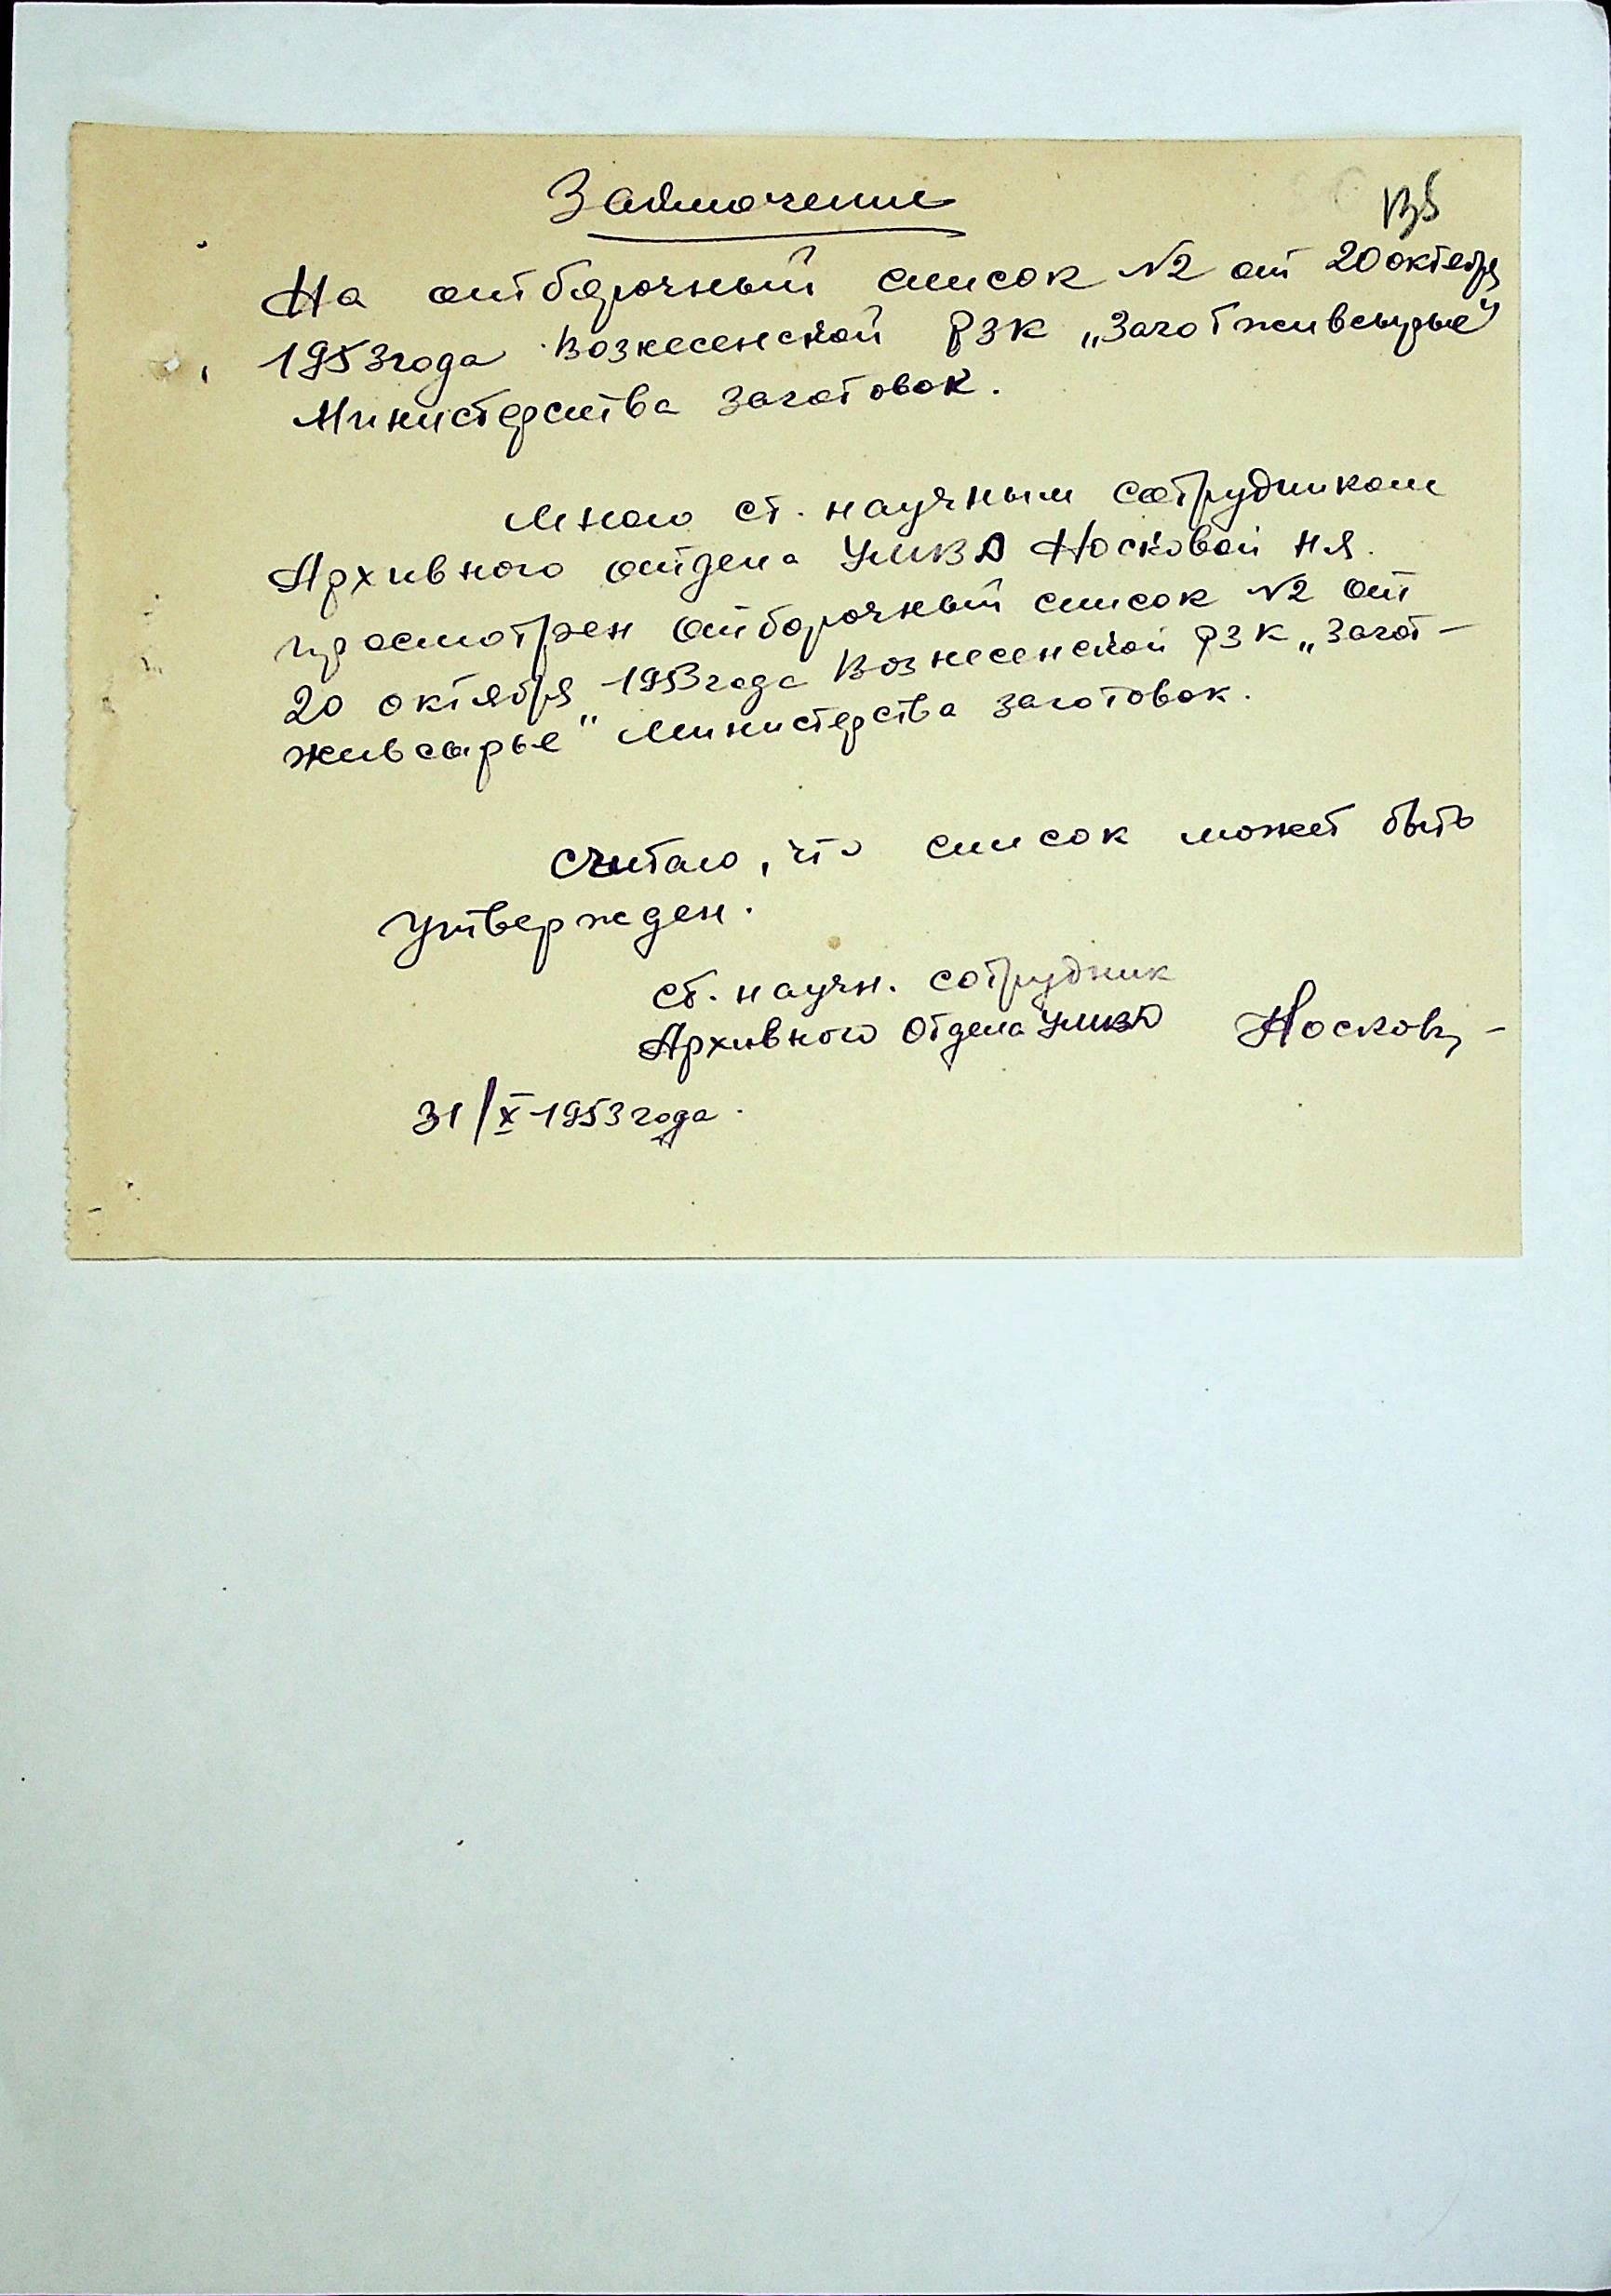 Заключение
На отборочный список №2 от 20 октября
1953 года Вознесенской РЗК „Заготживсырье"
Министерства заготовок.
Мною ст. научным сотрудником
Архивного отдела УМВД Носковой Н.Я.
просмотрен отборочный список №2 от
20 октября 1953 года Вознесенской РЗК „Загот-
живсырье" Министерства заготовок.
Считаю, что список может быть
утвержден.
Ст. научн. сотрудник
Архивного отдела УМВД Носкова
31/X 1953 года.